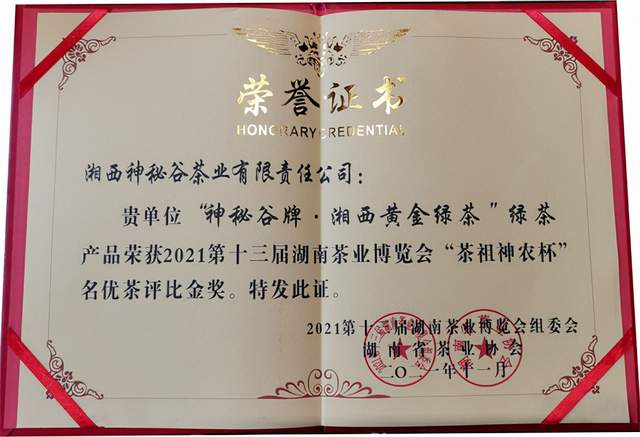 荣誉证书
HONORARY CREDENTIAL
湘西神秘谷茶业有限责任公司：
贵单位“神秘谷牌·湘西黄金绿茶”绿茶
产品荣获2021第十三届湖南茶业博览会“茶祖神农杯”
名优茶评比金奖。特发此证。
2021第十三届湖南茶业博览会组委会
湖南省茶业协会
二〇二一年十一月